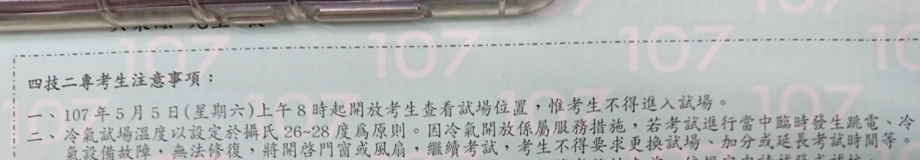 四技二專考生注意事項：
一、107 年 5 月 5 日(星期六)上午 8 時起開放考生查看試場位置，惟考生不得進入試場。
二、冷氣試場溫度以設定於攝氏 26~28 度為原則。因冷氣開放係屬服務措施，若考試進行當中臨時發生跳電、冷
氣設備故障，無法修復，將開啟門窗或風扇，繼續考試，考生不得要求更換試場、加分或延長考試時間等。
107 107 107
107 107 107